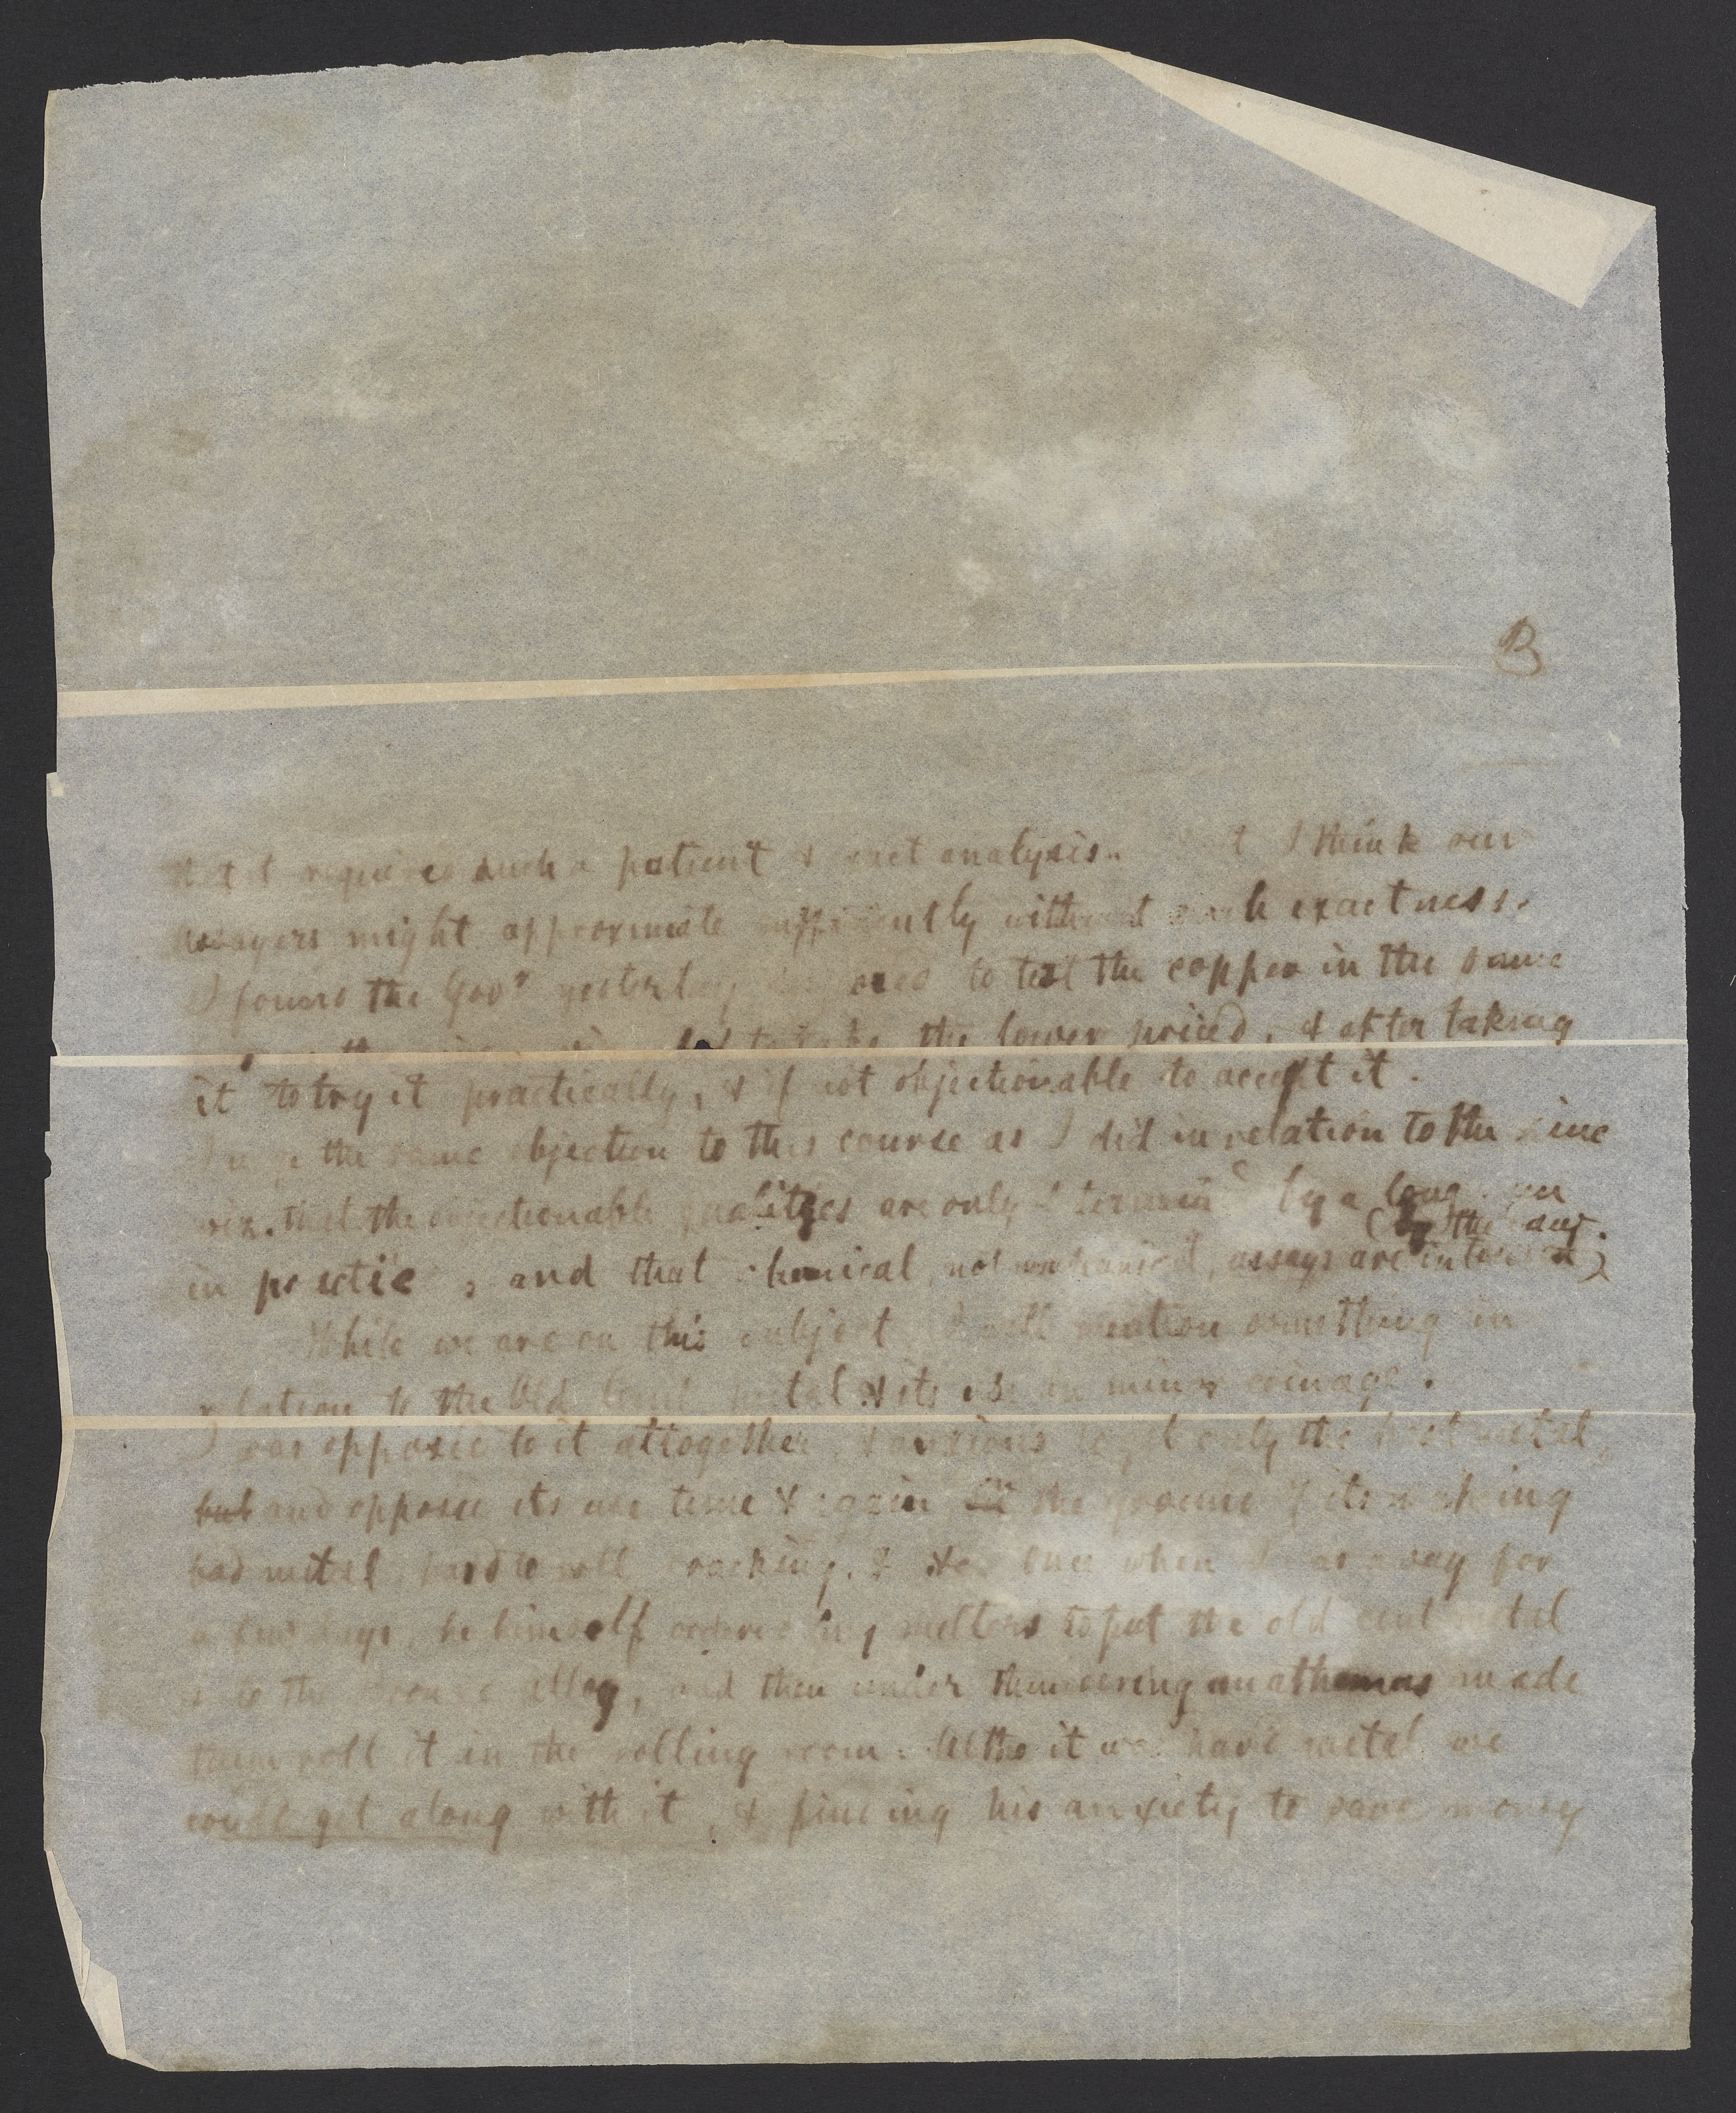 B
that it requires such a patient & exact analysis. But I think our
assayers might approximate sufficiently without such exactness.
I found the Govr yesterday disposed to test the copper in the same
the lower priced, & after taking
it to try it practically, & if not objectionable to accept it.
I urge the same objection to this course as I did in relation to the zinc
viz. that the objectionable qualities are only determined by a long run
(by the way.
in practice, and that chemical, not mechanical, assays are intended)
While we are on this subject I will mention something in
relation to the Old Cent metal & its use in minor coinage.
I was opposed to it altogether & anxious to get only the best metal,
but and opposed its use time & again on the ground of its making
bad metal, hard to roll, cracking, & Once when I was away for
a few days, he himself ordered my melters to put the old cent metal
into the alloy, and then under thundering anathemas made
them roll it in the rolling room. Altho it was hard metal we
could get along with it, & finding his anxiety to save money